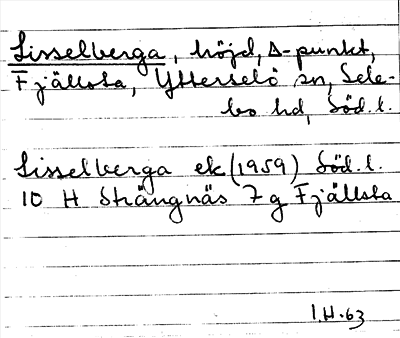 Lisselberga, höjd, Δ-punkt,
Fjällsta, Ytterselö sn, Sele-
bo hd, Söd.l.
Lisselberga ek (1959) Söd.l.
10 H Strängnäs 7 g Fjällsta
I.H.63